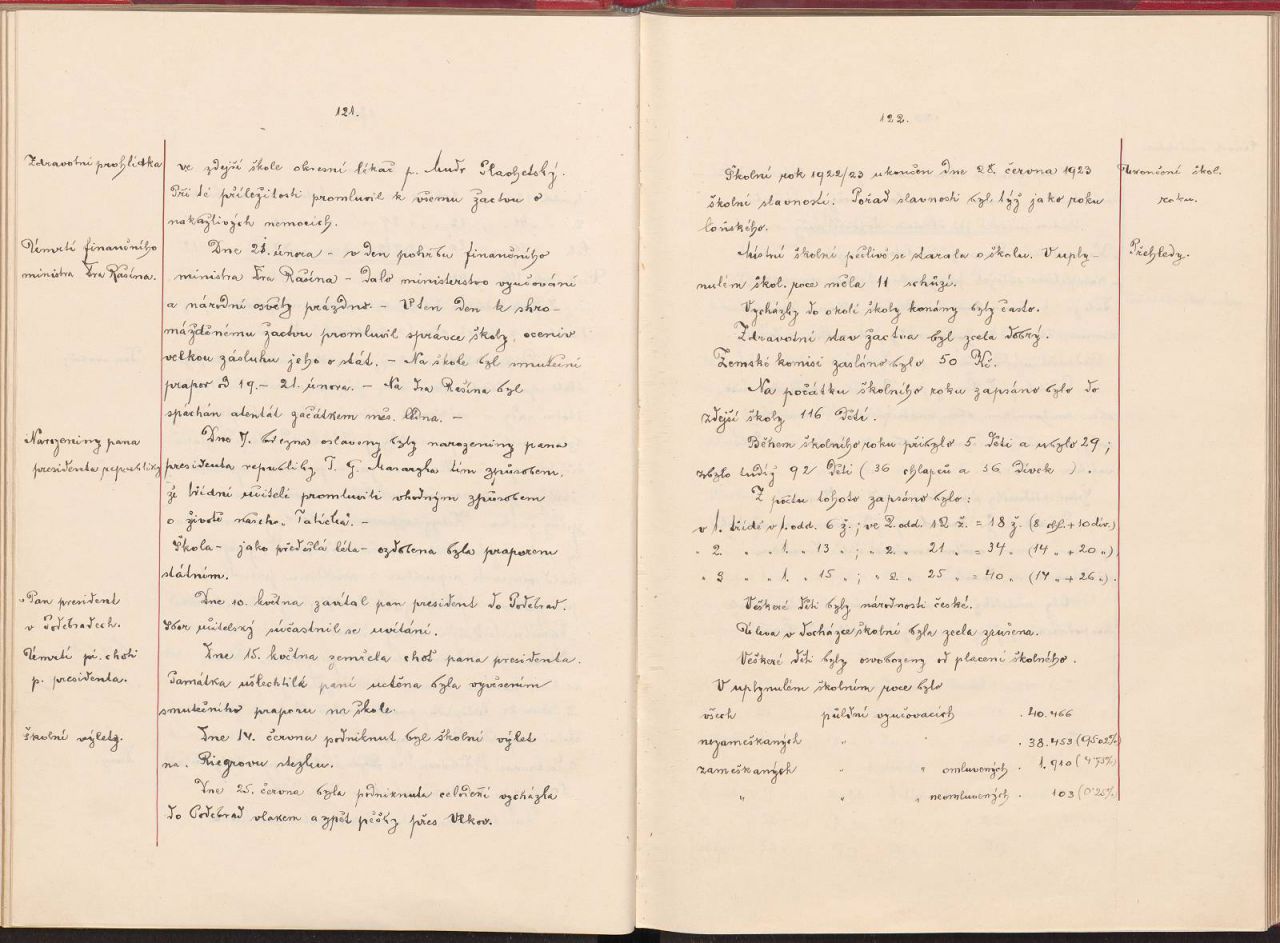 121.
Zdravotní prohlídka
ve zdejší škole okresní lékař p. Mudr
Při té příležitosti promluvil k všemu žactvu o
nakažlivých nemocích.
Úmrtí finančního
ministra Dra Rašína.
Dne 21. února - v den pohřbu finančního
ministra Dra Rašína - dalo ministerstvo vyučování
a národní osvěty prázdno. - V ten den k shro-
mážděnému žactvu promluvil správce školy, oceniv
velkou zásluhu jeho o stát. - Na škole byl smuteční
prapor od 19. - 21. února. - Na Dra Rašína byl
spáchán atentát začátkem měs. ledna. -
Narozeniny pana
presidenta republiky
Dne 7. března oslaveny byly narozeniny pana
presidenta republiky T. G. Masaryka tím způsobem,
že třídní učitelé promluvili vhodným způsobem
o životě našeho „Tatíčka“. -
Škola - jako předešlá léta - ozdobena byla praporem
státním.
Pan president
v Poděbradech.
Dne 10. května zavítal pan president do Poděbrad.
Sbor učitelský súčastnil se uvítání.
Úmrtí pí. choti
p. presidenta.
Dne 15. května zemřela choť pana presidenta.
Památka ušlechtilé paní uctěna byla vyvěšením
smutečního praporu na škole.
Školní výlety.
Dne 14. června podniknut byl školní výlet
na Riegrovu stezku.
Dne 25. června byla podniknuta celodení vycházka
do Poděbrad vlakem a zpět pěšky přes Vlkov.
122.
Školní rok 1922/23 ukončen dne 28. června 1923
školní slavností. Pořad slavnosti byl týž jako roku
loňského.
Ukončení škol.
roku.
Místní školní pečlivě se starala o školu. V uply-
nulém škol. roce měla 11 schůzí.
Přehledy.
Vycházky do okolí školy konány byly často.
Zdravotní stav žactva byl zcela dobrý.
Zemské komisi zasláno bylo 50 Kč.
Na počátku školního roku zapsáno bylo do
zdejší školy 116 dětí.
Během školního roku přibylo 5 dětí a ubylo 29;
zbylo tudíž 92 dětí (36 chlapců a 56 dívek ).
Z počtu tohoto zapsáno bylo:
v 1. třídě v 1. odd. 6 ž.; ve 2. odd. 12 ž. = 18 ž. (8 chl. + 10 dív.)
" 2. " " 1. " 13 " ; " 2. " 21 " = 34 " (14 " + 20 ").
" 3 " " 1. " 15 " ; " 2. " 25 " = 40 " (14 " + 26 ").
Veškeré děti byly národnosti české.
Úleva v docházce školní byla zcela zrušena.
Veškeré děti byly osvobozeny od placení školného.
V uplynulém školním roce bylo
všech půldní vyučovacích . 40.466
nezameškaných " " . 38.453 (95.02%)
zameškaných " " omluvených . 1.910 (4.73%)
" " " neomluvených . 103 (0.25%